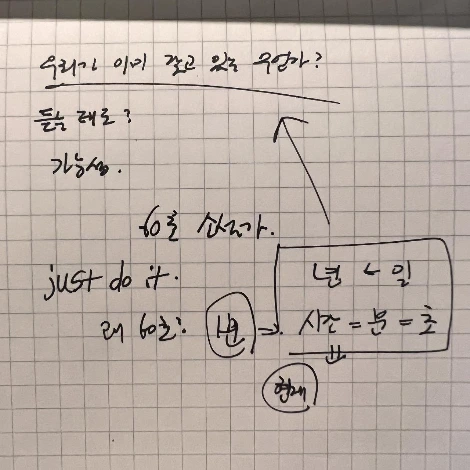 우리가 이미 갖고 있는 무언가?
듣는 대로?
가능성.
60초 산다.
just do it.
왜 60초? 년 ⇒
년 ← 일
시간 = 분 = 초
현재